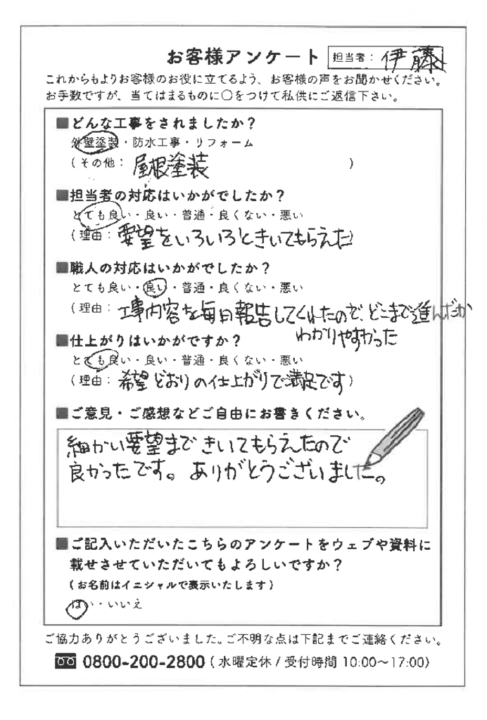 お客様アンケート 担当者: 伊藤
これからもよりお客様のお役に立てるよう、お客様の声をお聞かせください。
お手数ですが、当てはまるものに○をつけて私供にご返信下さい。
■どんな工事をされましたか?
外壁塗装・防水工事・リフォーム
(その他: 屋根塗装 )
■担当者の対応はいかがでしたか?
とても良い・良い・普通・良くない・悪い
(理由: 要望をいろいろときいてもらえた)
■職人の対応はいかがでしたか?
とても良い・良い・普通・良くない・悪い
(理由: 工事内容を毎日報告してくれたので、どこまで進んだか
わかりやすかった
■仕上がりはいかがですか?
とても良い・良い・普通・良くない・悪い
(理由: 希望どおりの仕上がりで満足です)
■ご意見・ご感想などご自由にお書きください。
細かい要望まできいてもらえたので
良かったです。ありがとうございました。
■ご記入いただいたこちらのアンケートをウェブや資料に
載せさせていただいてもよろしいですか?
(お名前はイニシャルで表示いたします)
はい・いいえ
ご協力ありがとうございました。ご不明な点は下記までご連絡ください。
0800-200-2800 (水曜定休/受付時間 10:00〜17:00)